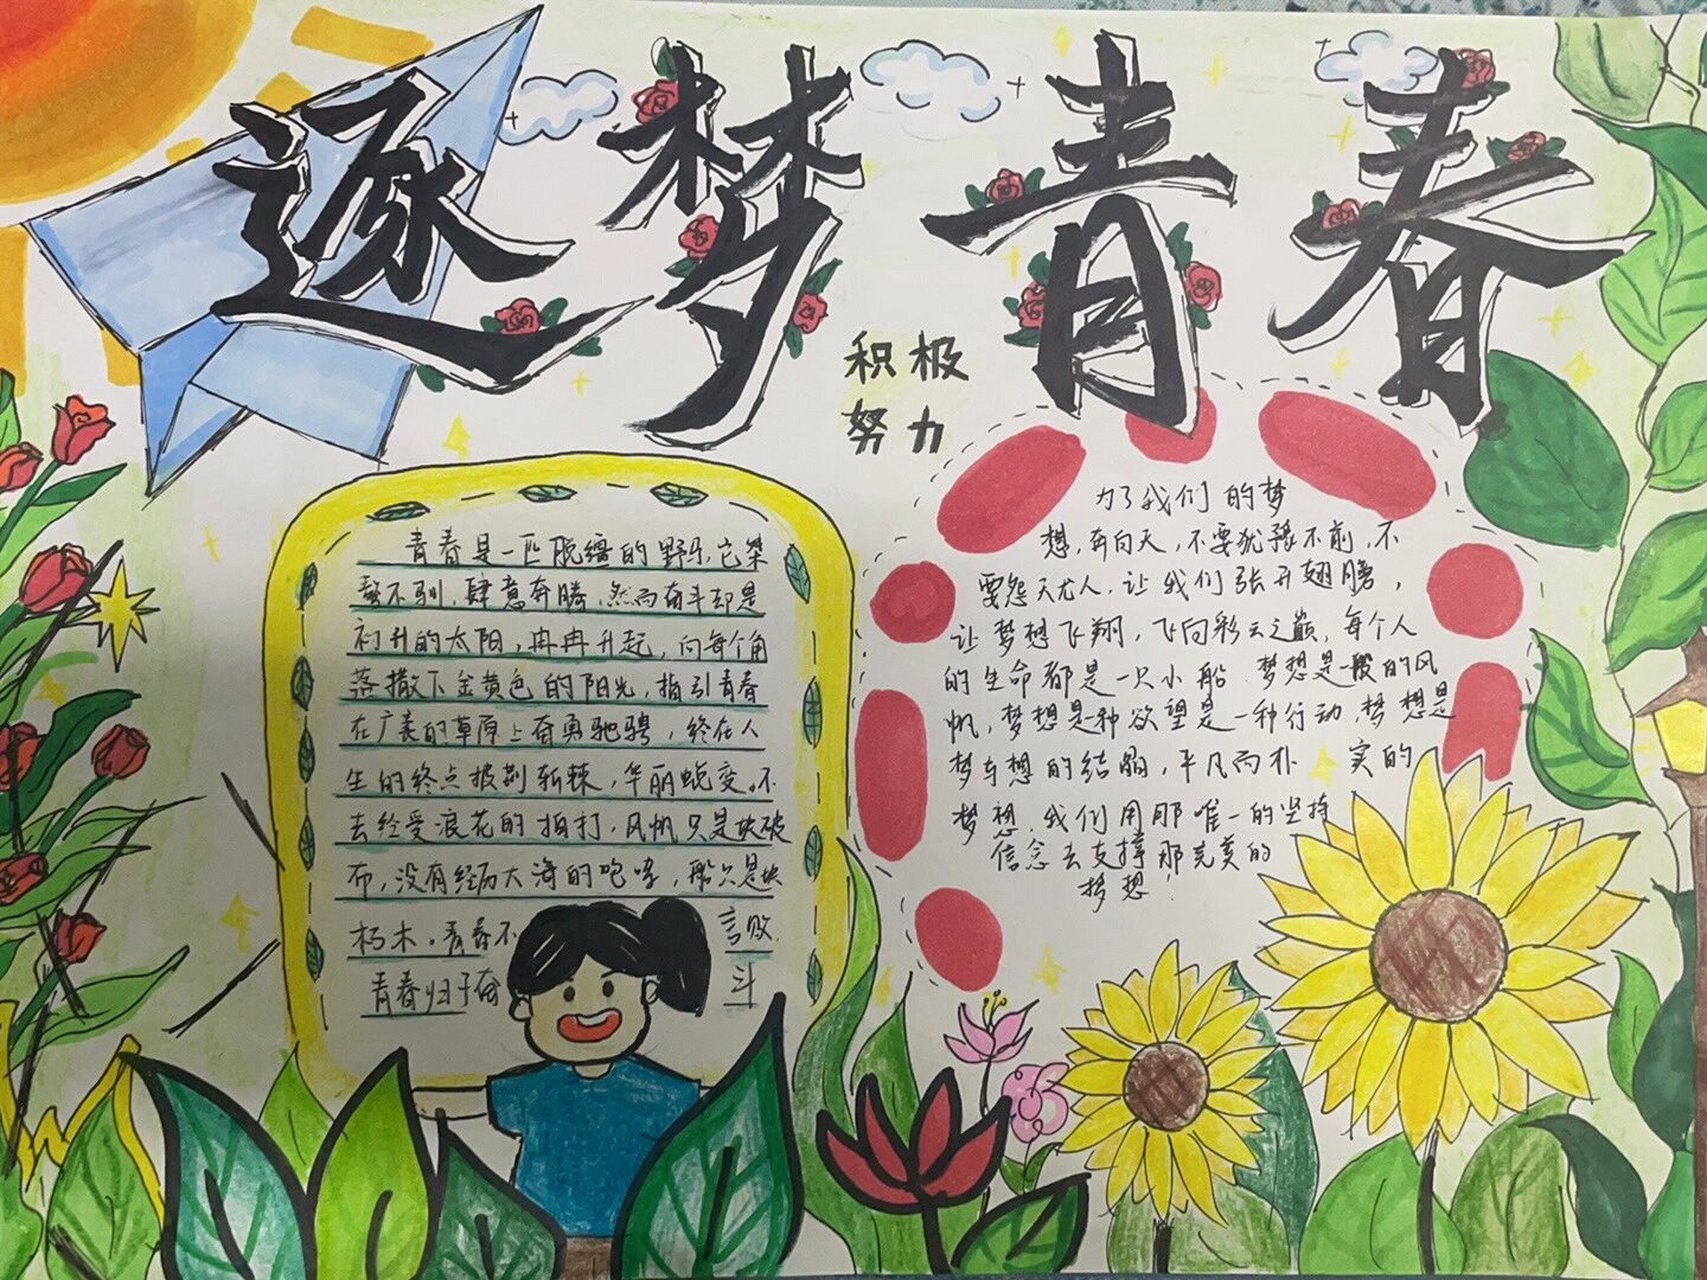 逐梦青春
积极
努力
青春是一匹脱缰的野马,它桀
骜不驯,肆意奔腾,然而奋斗却是
初升的太阳,冉冉升起,向每个角
落撒下金黄色的阳光,指引青春
在广袤的草原上奋勇驰骋,终在人
生的终点披荆斩棘,华丽蜕变。不
去经受浪花的拍打,风帆只是块破
布,没有经历大海的咆哮,船只是块
朽木。青春不言败.
青春归于奋斗
为了我们的梦
想,奔向天,不要犹豫不前,不
要怨天尤人,让我们张开翅膀,
让梦想飞翔,飞向彩云之巅,每个人
的生命都是一只小船.梦想是一般的风
帆,梦想是一种欲望是一种行动,梦想是
梦与想的结晶,平凡而朴 实的
梦想,我们用那唯一的坚持
信念去支撑那完美的
梦想!